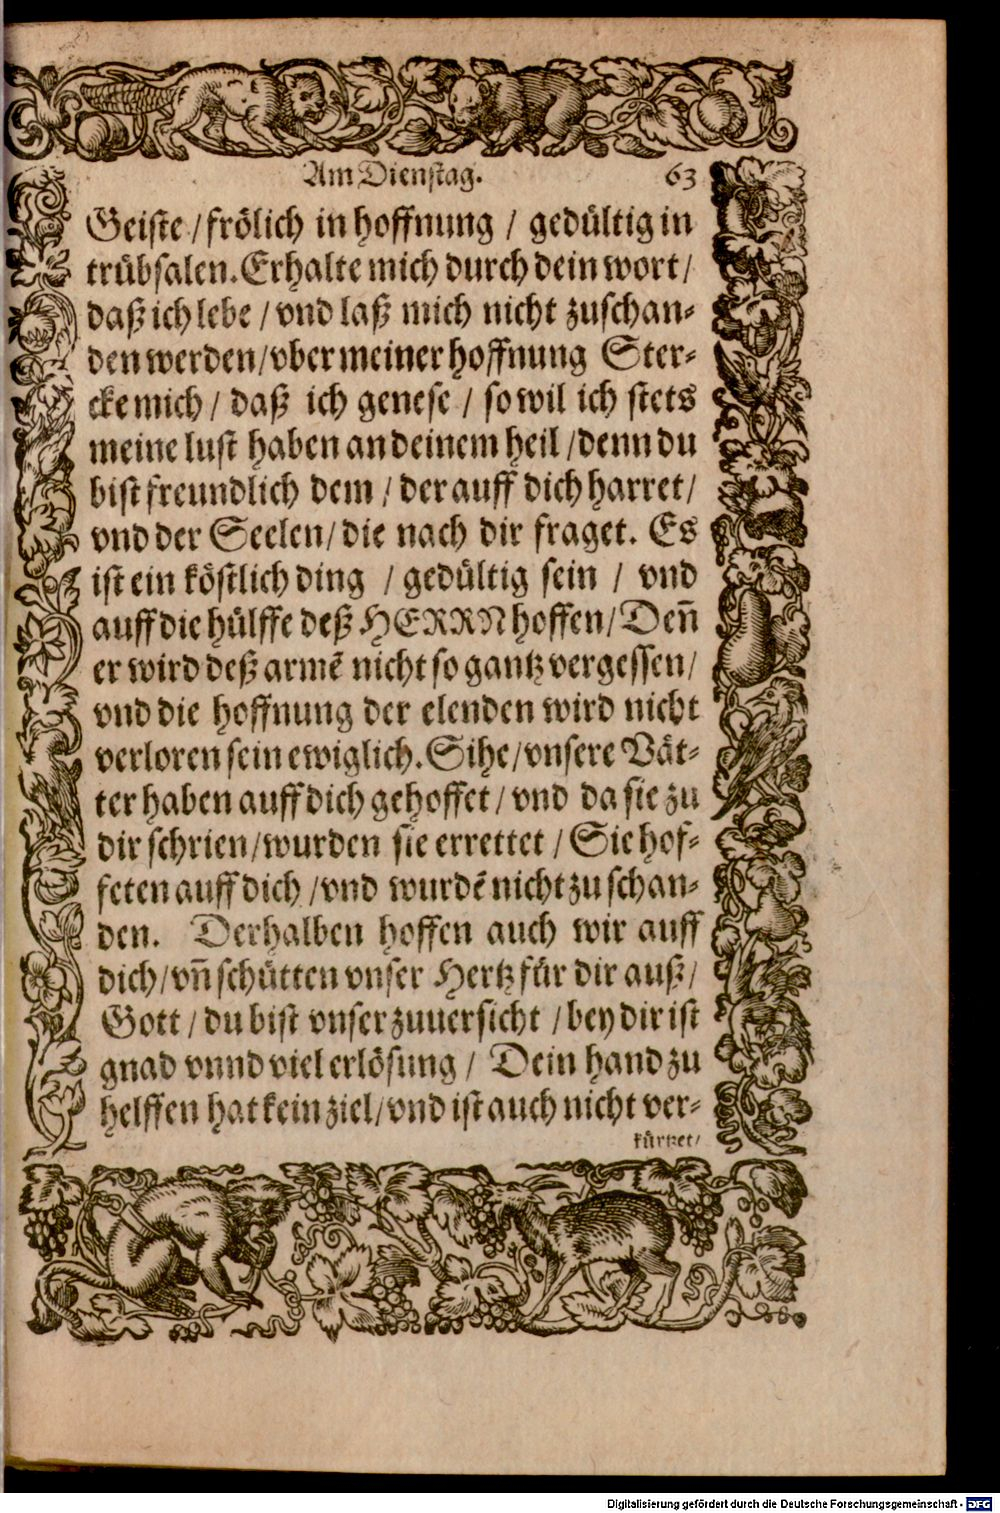 Am Dienstag. 63
Geiste / frölich in hoffnung / gedültig in
trübsalen. Erhalte mich durch dein wort /
daß ich lebe / vnd laß mich nicht zuschan-
den werden / vber meiner hoffnung Ster-
cke mich / daß ich genese / so wil ich stets
meine lust haben an deinem heil / denn du
bist freundlich dem / der auff dich harret /
vnd der Seelen / die nach dir fraget. Es
ist ein köstlich ding / gedültig sein / vnd
auff die hülffe deß HERRN hoffen / Deñ
er wird deß armẽ nicht so gantz vergessen /
vnd die hoffnung der elenden wird nicht
verloren sein ewiglich. Sihe / vnsere Vät-
ter haben auff dich gehoffet / vnd da sie zu
dir schrien / wurden sie errettet / Sie hof-
feten auff dich / vnd wurdẽ nicht zu schan-
den. Derhalben hoffen auch wir auff
dich / vñ schütten vnser Hertz für dir auß /
Gott / du bist vnser zuuersicht / bey dir ist
gnad vnnd viel erlösung / Dein hand zu
helffen hat kein ziel / vnd ist auch nicht ver-
kürtzet /
Digitalisierung gefördert durch die Deutsche Forschungsgemeinschaft - DFG